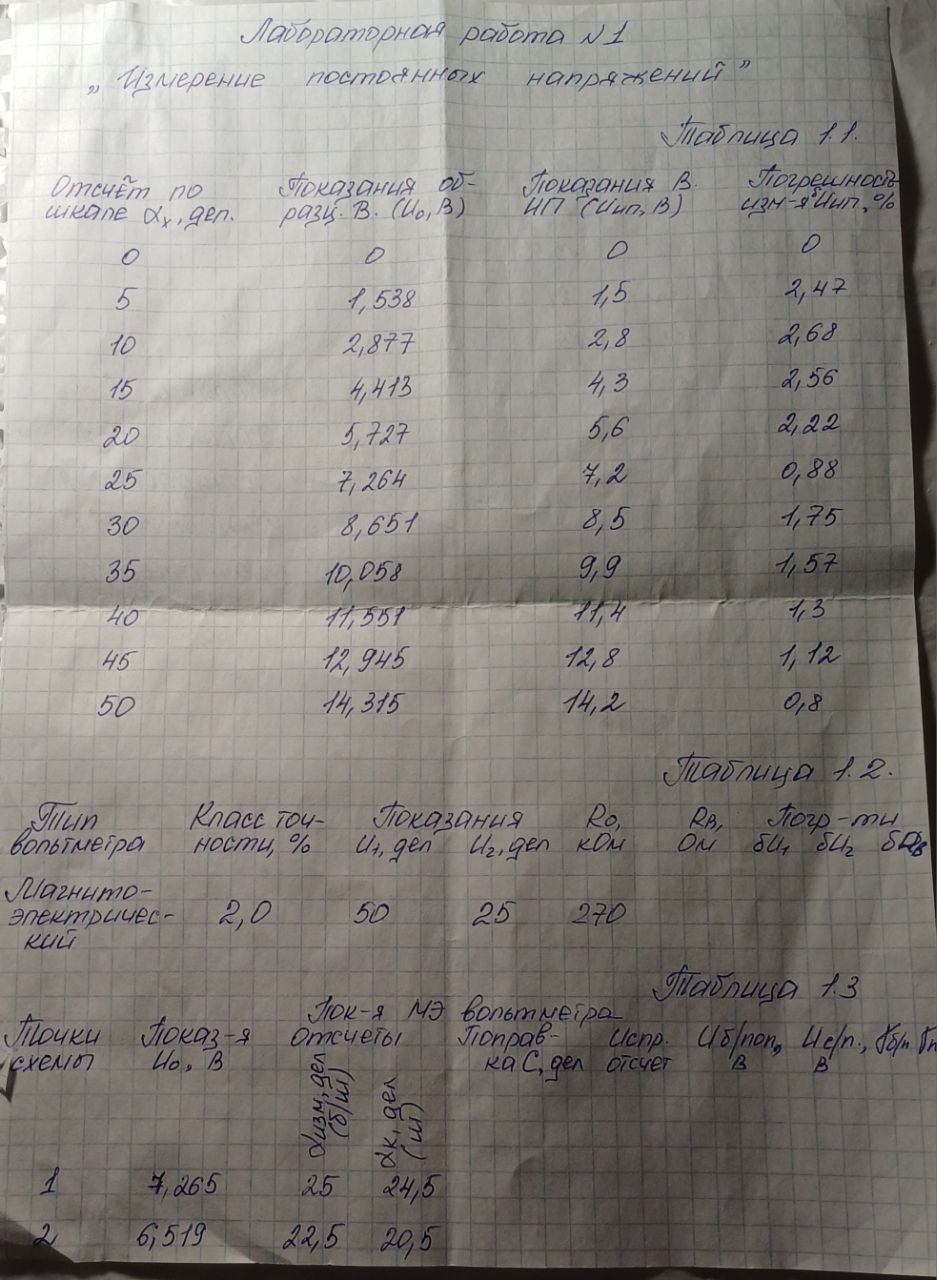 Лабораторная работа №1
„Измерение постоянных напряжений”
Таблица 1.1.
Отсчёт по шкале αx, дел. Показания образц. В. (U0, В) Показания В. ИП (Uип, В) Погрешность изм-я δUип, %
0 0 0 0
5 1,538 1,5 2,47
10 2,877 2,8 2,68
15 4,413 4,3 2,56
20 5,727 5,6 2,22
25 7,264 7,2 0,88
30 8,651 8,5 1,75
35 10,058 9,9 1,57
40 11,551 11,4 1,3
45 12,945 12,8 1,12
50 14,315 14,2 0,8
Таблица 1.2.
Тип вольтметра Класс точности, % Показания U1, дел U2, дел R0, кОм RВ, Ом Погр-ти δU1 δU2
Магнито-
электричес- 2,0 50 25 270
кий
Таблица 1.3
Пок-я МЭ вольтметра
Точки Показ-я отсчеты Поправ- Испр. Uб/поп, Uс/п.,
схемы U0, В ка С, дел отсчет В В
αизм, дел (б/ш) αк, дел (ш)
1 7,265 25 24,5
2 6,519 22,5 20,5